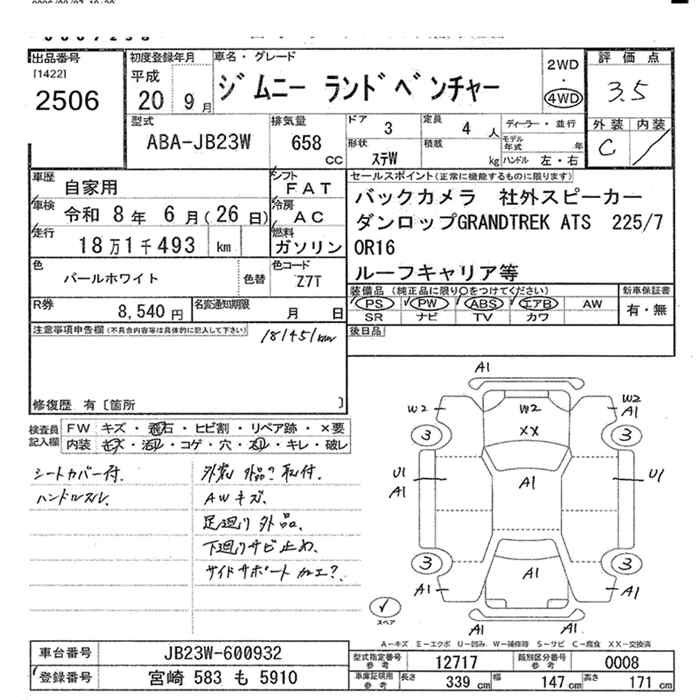 出品番号
[1422]
2506
初度登録年月
平成
20 9月
車名・グレード
ジムニー ランドベンチャー
2WD
・
4WD
評価点
3.5
外装 内装
C
型式
ABA-JB23W
排気量
658
cc
ドア 3
形状 ステW
定員 4 人
積載 kg
ディーラー・並行
モデル年式 年
ハンドル 左・右
車歴 自家用
車検 令和 8年 6月(26日)
走行 18万1千493 km
シフト FAT
冷房 AC
燃料 ガソリン
セールスポイント(正常に機能するものに限ります)
バックカメラ 社外スピーカー
ダンロップGRANDTREK ATS 225/7
0R16
ルーフキャリア等
色 パールホワイト
色替
色コード Z7T
R券 8,540円
名変通知期限 月 日
装備品 (純正品に限り○をつけてください)
PS PW ABS エアB AW
SR ナビ TV カワ
新車保証書
有・無
後日品
注意事項申告欄(不具合内容等は具体的に記入して下さい)
181451km
修復歴 有〔箇所 〕
検査員記入欄
FW キズ・飛石・ヒビ割・リペア跡・×要
内装 キズ・汚れ・コゲ・穴・スレ・キレ・破レ
シートカバー付.
ハンドルスレ.
AWキズ.
足廻り外品.
下廻りサビ止め.
サイドサポート加工?.
A1
W2
W2
A1
3
3
W2
XX
U1
A1
A1
U1
3
3
A1
A1
A1
A1
スペア
A―キズ E―エクボ U―凹み W―補修跡 S―サビ C―腐食 XX―交換済
車台番号 JB23W-600932
登録番号 宮崎 583 も 5910
型式指定番号 参考 12717
類別区分番号 参考 0008
車庫証明用 参考 長さ 339 cm 幅 147 cm 高さ 171 cm